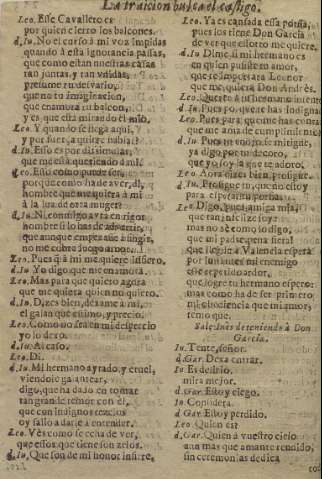 La traicion busca el castigo.
Leo. Esse Cavallero es
por quien cierro los balcones.
d. Iu. No el curso à mi voz impidas
quando à esta ignorancia passas,
que como estàn nuestras casas
tan juntas, y tan
presume tu
que no tu imaginacion,
que enamora tu balcon,
y es que està mirando el mio.
Leo. Y quando se haga aqui,
y por fuerça, quiere
d. Iu. Esso es por dissimular,
que me està queriendo à mi.
Leo. Esso como puede ser,
porque como ha de aver, di,
hombre que me quiera à mi
à la luz de otra muger?
d. Iu. Ni conmigo avrà en rigor
hombre si lo has de advertir,
que aunque empeçasse à fingir,
no me cobre luego amor.
Leo. Pues à mi me quiere
d. Iu. Yo digo que me enamora.
Leo. Mas para què quiero agora
que me quiera quien no quiero.
d. Iu. Dizes bien, dexame à mi
el galan que estimo, y precio.
Leo. Como no sea en mi desprecio
yo lo dexo.
d. Iu. Al caso.
Leo. Di.
d. Iu. Mi hermano ayrado, y cruel,
viendole
digo, que ha dado en tomar
tan grande temor con èl,
que con
oy salio à darle à entender.
Leo. Vès como se echa de ver,
que essos que tiene son zelos.
d. Iu. Que son de mi honor infiere,
Leo. Ya es cansada essa porfia,
pues los tiene Don Garcia
de ver que esse me quiere.
d. Iu. Dime, si mi hermano es
en quien pusiste tu amor,
que se
que me querrà Don Andrès.
Leo. Quererà tu hermano intento
d. Iu. Pues
Leo. Pues para que me has contado
que me ama de cumplimiento.
d. Iu. Pues tu enojo se mitigue,
ya digo por tu decoro,
que yo soy à que te adoro.
Leo. Aora dizes bien, prosigue.
d. Iu. Prosigue tu, que no estoy
para
Leo. Digo, pues, amiga mia,
que tan infelize soy:
mas no sè como lo digo,
que mi padre
que llegue à Valencia espera
por instantes mi enemigo
esse repetido ardor,
que logre tu hermano espero:
mas como ha de ser primero
mi obediencia que mi amor,
temo que.
Sale Inès deteniendo à Don
Garcia.
In. Tente, señor.
d. Gar. Dexa entrar.
In. Es delirio.
mira mejor.
d. Gar. Estoy ciego.
In. Considera.
d. Gar. Estoy perdido.
Leo. Quien es?
d. Gar. Quien à vuestro cielo
aun mas que amante rendido,
sin ceremonias dedica